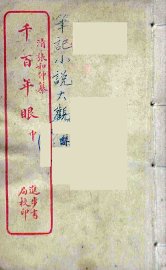 筆記小說大觀
清張和仲纂
千百年眼
中
進步書
局校印